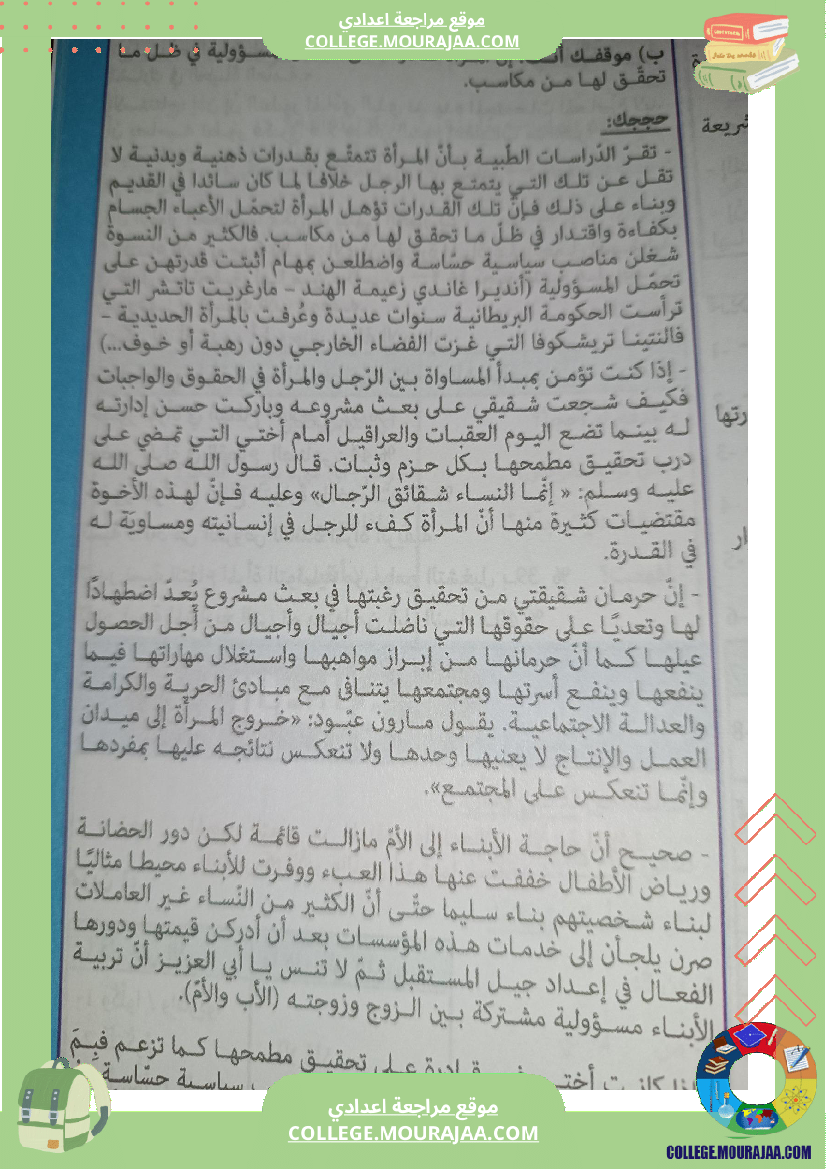 موقع مراجعة اعدادي
COLLEGE.MOURAJAA.COM
ب) موقفك
سؤولية في ظل ما
تحقّق لها من مكاسب.
حججك:
شريعة
- تقرّ الدّراسات الطّبية بأنّ المرأة تتمتّع بقدرات ذهنية وبدنية لا
تقل عن تلك التي يتمتع بها الرجل خلافا لما كان سائدا في القديم
وبناء على ذلك فإنّ تلك القدرات تؤهل المرأة لتحمّل الأعباء الجسام
بكفاءة واقتدار في ظلّ ما تحقق لها من مكاسب. فالكثير من النسوة
شغلن مناصب سياسية حسّاسة واضطلعن بمهام أثبتت قدرتهن على
تحمّل المسؤولية (أنديرا غاندي زعيمة الهند - مارغريت تاتشر التي
ترأست الحكومة البريطانية سنوات عديدة وعُرفت بالمرأة الحديدية -
فالنتينا تريشكوفا التي غزت الفضاء الخارجي دون رهبة أو خوف...)
- إذا كنت تؤمن بمبدأ المساواة بين الرّجل والمرأة في الحقوق والواجبات
فكيف شجعت شقيقي على بعث مشروعه وباركت حسن إدارته
رتها
له بينما تضع اليوم العقبات والعراقيل أمام أختي التي تمضي على
درب تحقيق مطمحها بكل حزم وثبات. قال رسول الله صلى الله
عليه وسلم: « إنّما النساء شقائق الرّجال» وعليه فإنّ لهذه الأخوة
مقتضيات كثيرة منها أنّ المرأة كفء للرجل في إنسانيته ومساويَة له
ار
في القدرة.
- إنّ حرمان شقيقتي من تحقيق رغبتها في بعث مشروع يُعدّ اضطهادًا
لها وتعديًا على حقوقها التي ناضلت أجيال وأجيال من أجل الحصول
عيلها كما أنّ حرمانها من إبراز مواهبها واستغلال مهاراتها فيما
ينفعها وينفع أسرتها ومجتمعها يتنافى مع مبادئ الحرية والكرامة
والعدالة الاجتماعية. يقول مارون عبّود: «خروج المرأة إلى ميدان
العمل والإنتاج لا يعنيها وحدها ولا تنعكس نتائجه عليها بمفردها
وإنّما تنعكس على المجتمع».
- صحيح أنّ حاجة الأبناء إلى الأمّ مازالت قائمة لكن دور الحضانة
ورياض الأطفال خففت عنها هذا العبء ووفرت للأبناء محيطا مثاليًا
لبناء شخصيتهم بناء سليما حتّى أنّ الكثير من النّساء غير العاملات
صرن يلجأن إلى خدمات هذه المؤسسات بعد أن أدركن قيمتها ودورها
الفعال في إعداد جيل المستقبل ثمّ لا تنس يا أبي العزيز أنّ تربية
الأبناء مسؤولية مشتركة بين الزوج وزوجته (الأب والأمّ).
كانت قادرة على تحقيق مطمحها كما تزعم فبِمَ
سياسية حسّاسة
موقع مراجعة اعدادي
COLLEGE.MOURAJAA.COM
COLLEGE.MOURAJAA.COM